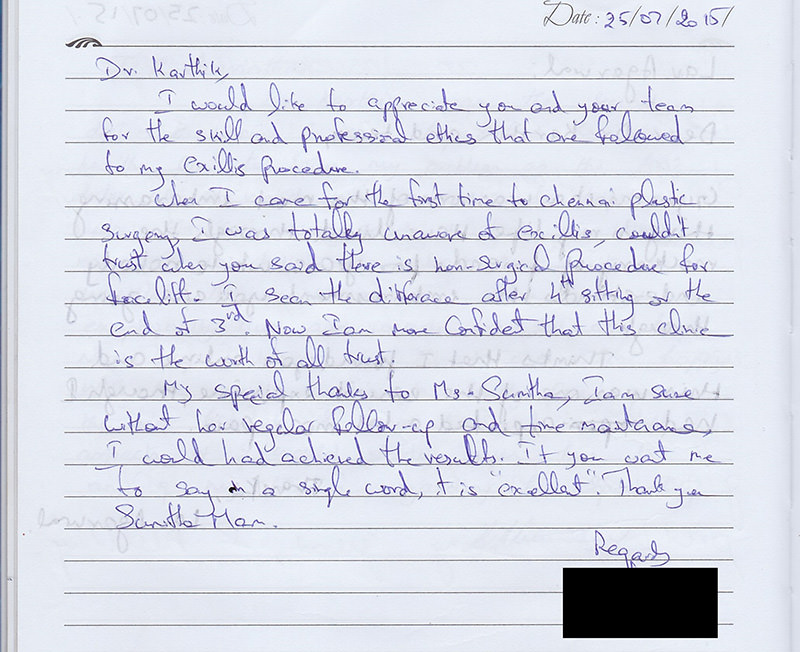 Date: 25/07/2015/
Dr. Karthik,
I would like to appreciate you and your team
for the skill and professional ethics that are followed
to my exillis procedure.
When I came for the first time to chennai plastic
surgery, I was totally unaware of exillis, couldn't
trust when you said there is non-surgical procedure for
facelift. I seen the difference after 4th sitting or the
end of 3rd. Now I am more Confident that this clinic
is the worth of all trust.
My special thanks to Ms. Sunitha, I am sure
without her regular follow-up and time maintenance,
I would had achieved the results. If you want me
to say in a single word, it is "excellent". Thank you
Sunitha Mam.
Regards